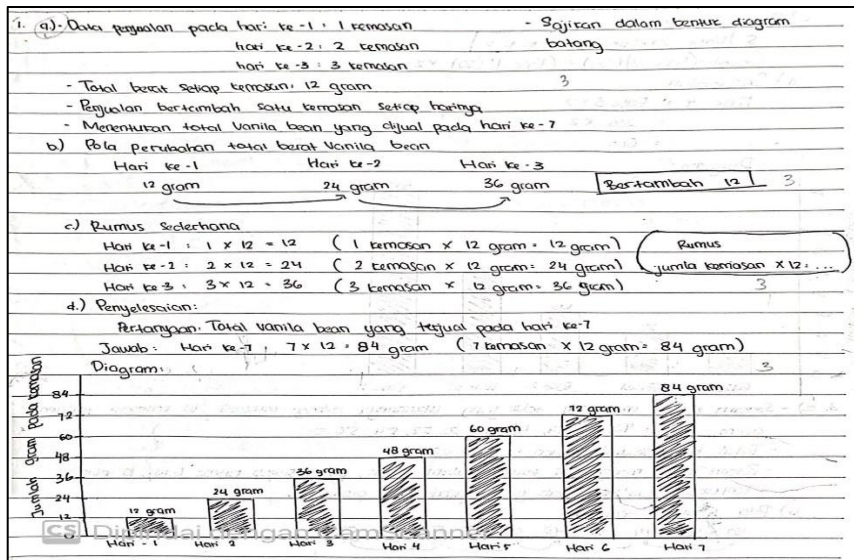 1. a). Data penjualan pada hari ke -1 : 1 kemasan - Sajikan dalam bentuk diagram
hari ke -2 : 2 kemasan batang
hari ke -3 : 3 kemasan
- Total berat setiap kemasan: 12 gram 3
- Penjualan bertambah satu kemasan setiap harinya
- Menentukan total vanila bean yang dijual pada hari ke-7
b) Pola perubahan total berat Vanila bean
Hari ke -1 Hari ke -2 Hari ke - 3
12 gram 24 gram 36 gram Bertambah 12 3
c.) Rumus sederhana
Hari ke -1 : 1 x 12 = 12 ( 1 kemasan x 12 gram = 12 gram ) Rumus
Hari ke -2 : 2 x 12 = 24 ( 2 kemasan x 12 gram = 24 gram ) jumla kemasan x 12 = ...
Hari ke -3 : 3 x 12 = 36 ( 3 kemasan x 12 gram = 36 gram ) 3
d.) Penyelesaian:
Pertanyaan: Total vanila bean yang terjual pada hari ke-7
Jawab : Hari ke-7 : 7 x 12 = 84 gram ( 7 kemasan x 12 gram = 84 gram )
Diagram: 3
Jumlah gram pada kemasan
84
72
60
48
36
24
12
0
12 gram
24 gram
36 gram
48 gram
60 gram
72 gram
84 gram
Hari - 1 Hari 2 Hari 3 Hari 4 Hari 5 Hari 6 Hari 7
CS Dipindai dengan CamScanner